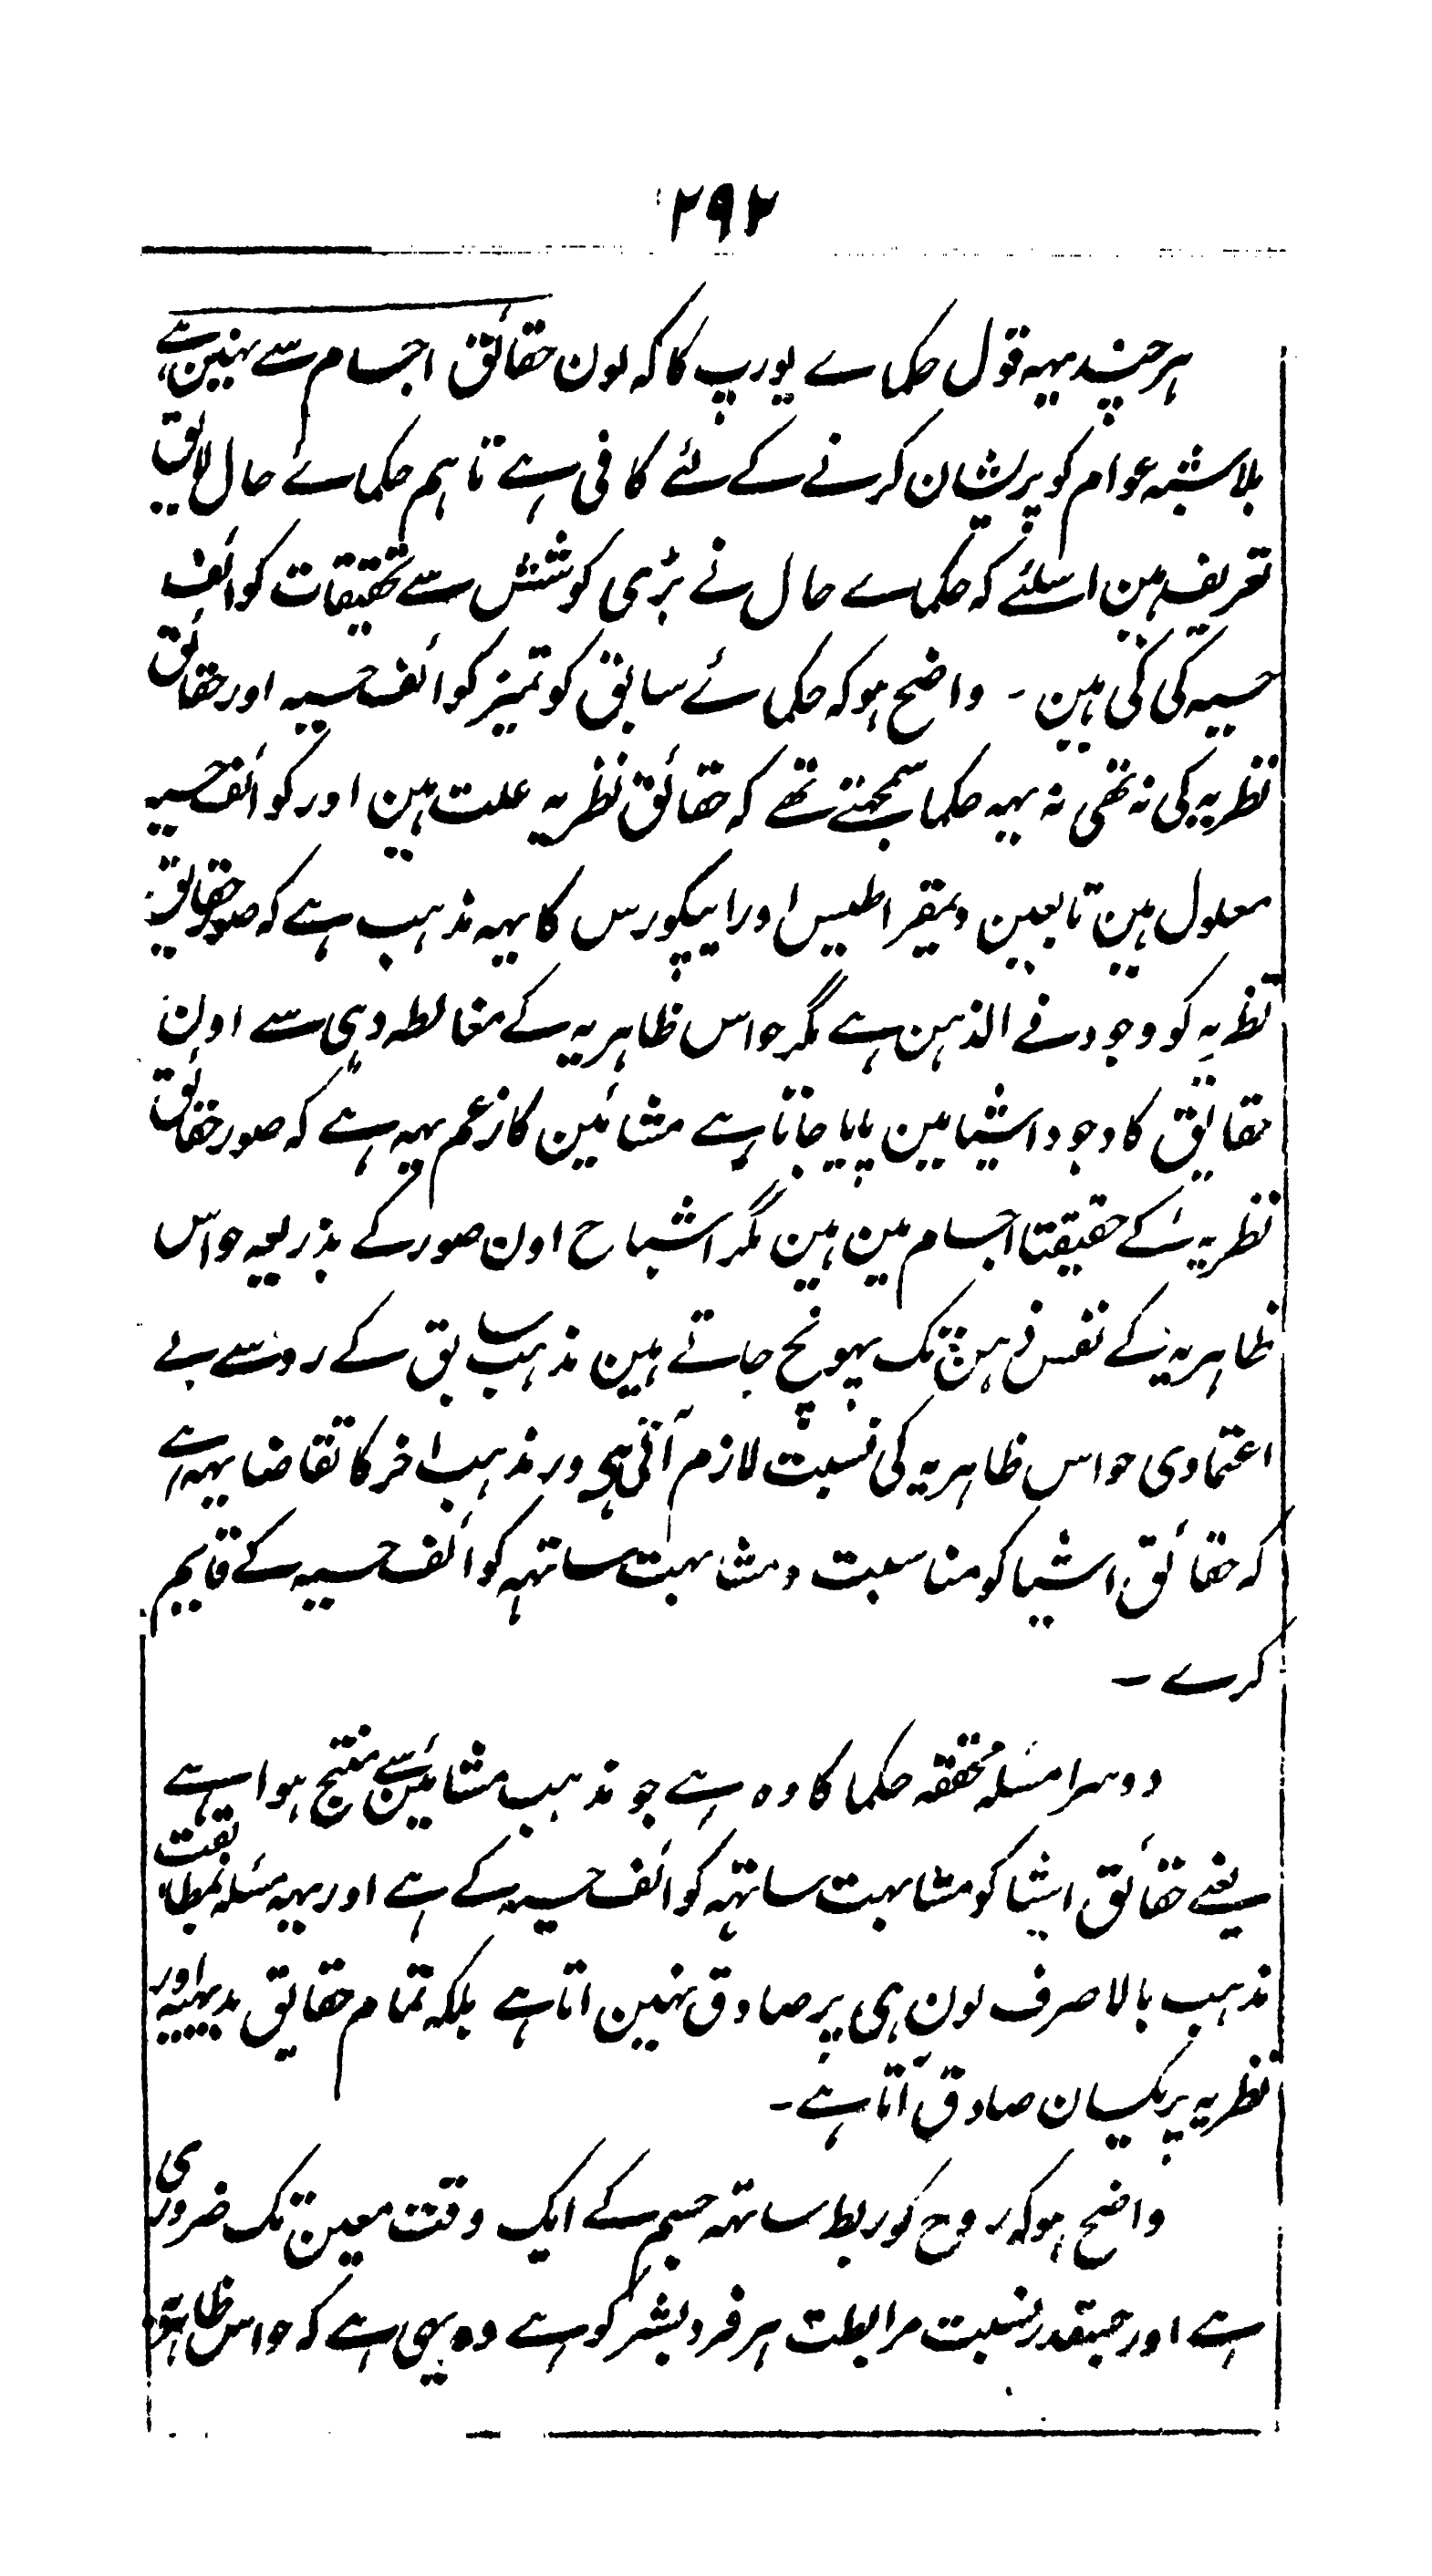 ۲۹۲
ہر چند یہہ قول حکماے یورپ کا کہ لون حقائق اجسام سے نہین ہے
بلا شبہہ عوام کو پریشان کرنے کے لئے کافی ہے تاہم حکمائے حال لایق
تعریف ہین اسلئے کہ حکماے حال نے بڑی کوشش سے تحقیقات کوائف
حسیہ کی کی ہین ۔ واضح ہو کہ حکمائے سابق کو تمیز کوائف حسیہ اور حقائق
نظریہ کی نہ تھی نہ یہہ حکما سمجھتے تھے کہ حقائق نظریہ علت ہین اور کوائف حسیہ
معلول ہین تابعین دیمقراطیس اور ایپکورس کا یہہ مذہب ہے کہ صور حقایق
نظریہ کو وجود فے الذہن ہے مگر حواس ظاہریہ کے مغالطہ دہی سے اون
حقایق کا وجود اشیا مین پایا جاتا ہے مشائین کا زعم یہہ ہے کہ صور حقائق
نظریہ کے حقیقتا اجسام مین ہین مگر اشباح اون صور کے بذریعہ حواس
ظاہریہ کے نفس ذہن تک پہونچ جاتے ہین مذہب سابق کے رو سے بے
اعتمادی حواس ظاہریہ کی نسبت لازم آتی ہے اور مذہب اخر کا تقاضا یہہ ہے
کہ حقائق اشیا کو مناسبت و مشابہت ساتہہ کوائف حسیہ کے قایم
کرے ۔
دوسرا مسئلہ محققہ حکما کا وہ ہے جو مذہب مشائین سے منتج ہوا ہے
یعنے حقائق اشیا کو مشابہت ساتہہ کوائف حسیہ کے ہے اور یہہ مسئلہ بمطابقت
مذہب بالا صرف لون ہی پر صادق نہین اتا ہے بلکہ تمام حقایق بدیہیہ اور
نظریہ پر یکسان صادق آتا ہے ۔
واضح ہو کہ روح کو ربط ساتہہ جسم کے ایک وقت معین تک ضروری
ہے اور جسقدر نسبت مرابطت ہر فرد بشر کو ہے وہ یہی ہے کہ حواس ظاہری